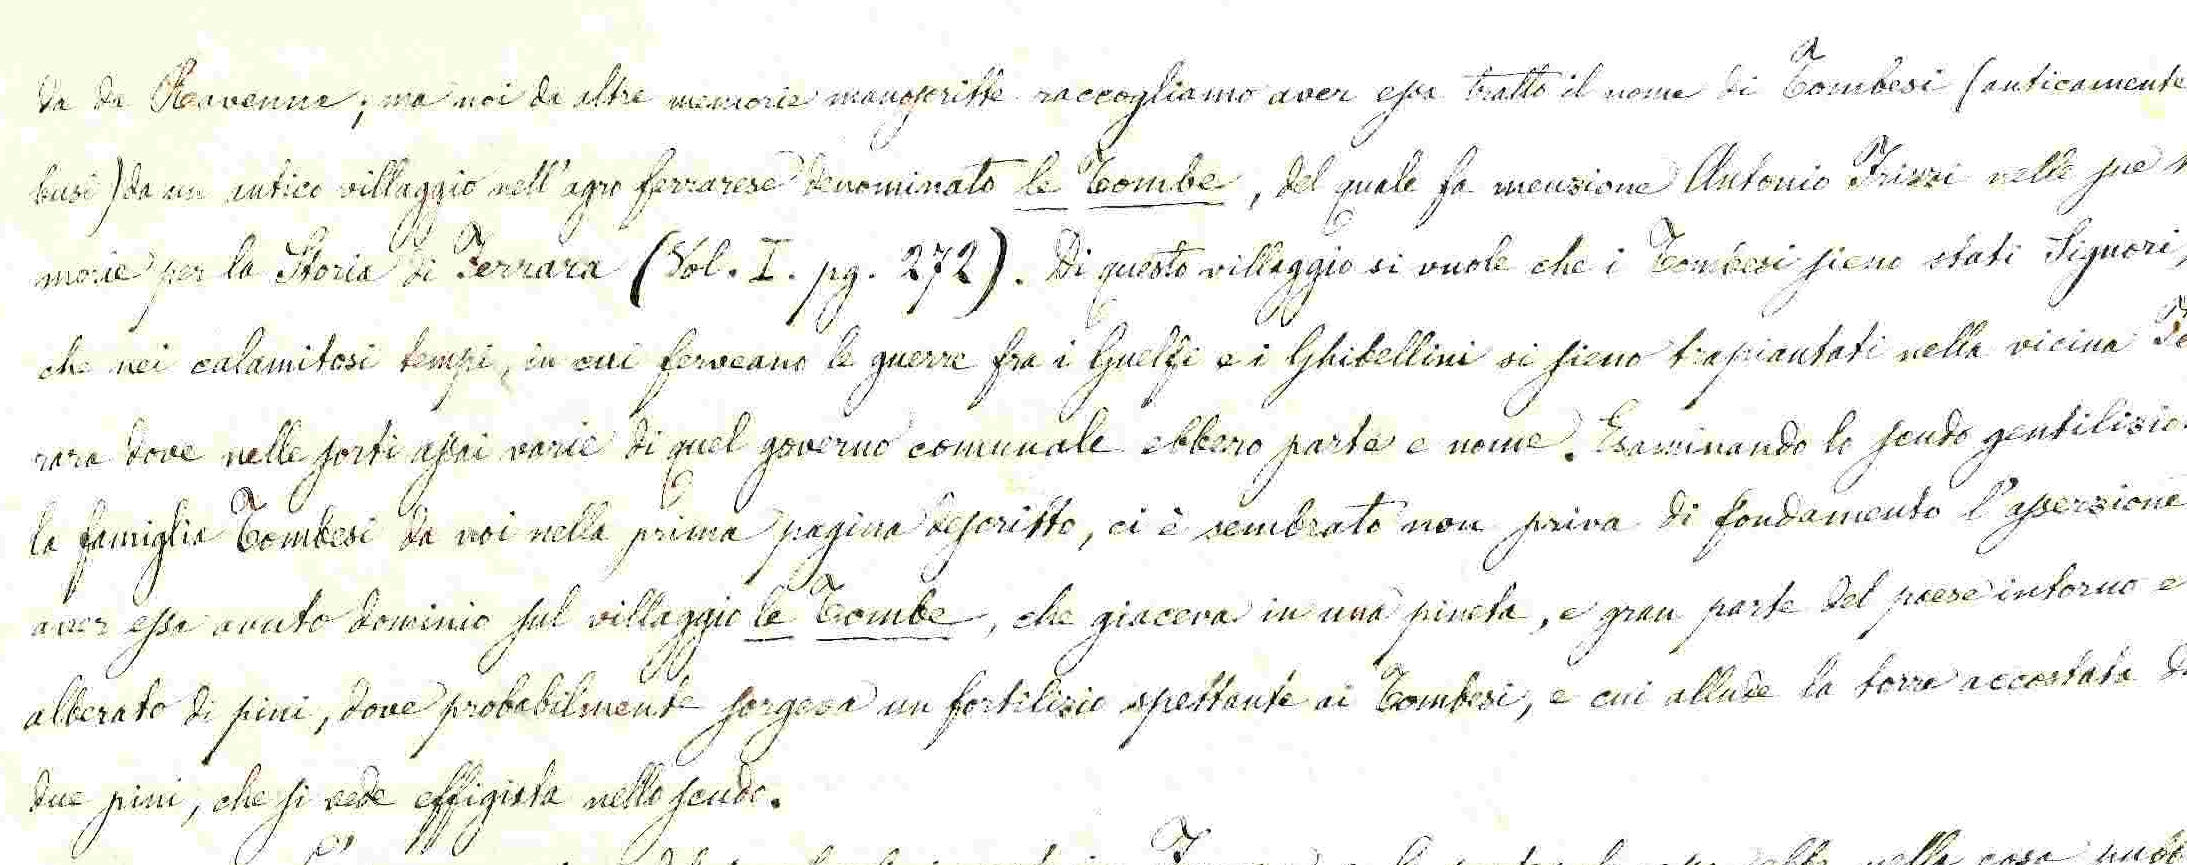 da da Ravenna; ma noi da altre memorie manoscritte raccogliamo aver essa tratto il nome di Tombesi (anticamente
busi) da un antico villaggio nell'agro ferrarese denominato le Tombe, del quale fa menzione Antonio Frizzi nelle sue
morie per la Storia di Ferrara (Vol. I. pg. 272). Di questo villaggio si vuole che i Tombesi sieno stati Signori,
che nei calamitosi tempi, in cui ferveano le guerre fra i Guelfi e i Ghibellini si sieno trapiantati nella vicina Fe
rara dove nelle sorti assai varie di quel governo comunale ebbero parte e nome. Esaminando lo scudo gentilizio
la famiglia Tombesi da noi nella prima pagina descritto, ci è sembrato non priva di fondamento l'asserzione
aver essa avuto dominio sul villaggio le Tombe, che giaceva in una pineta, e gran parte del paese intorno e
alberato di pini, dove probabilmente sorgeva un fortilizio spettante ai Tombesi, e cui allude la torre accostata d
due pini, che si vede effigiata nello scudo.
nella casa